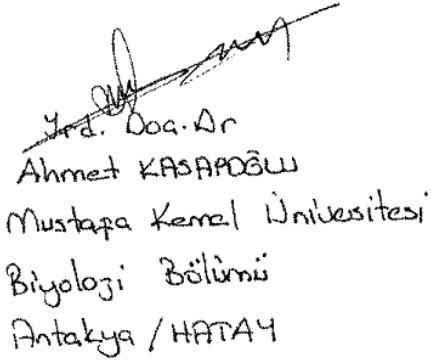 Yrd. Doç. Dr
Ahmet KASAPOĞLU
Mustafa Kemal Üniversitesi
Biyoloji Bölümü
Antakya / HATAY